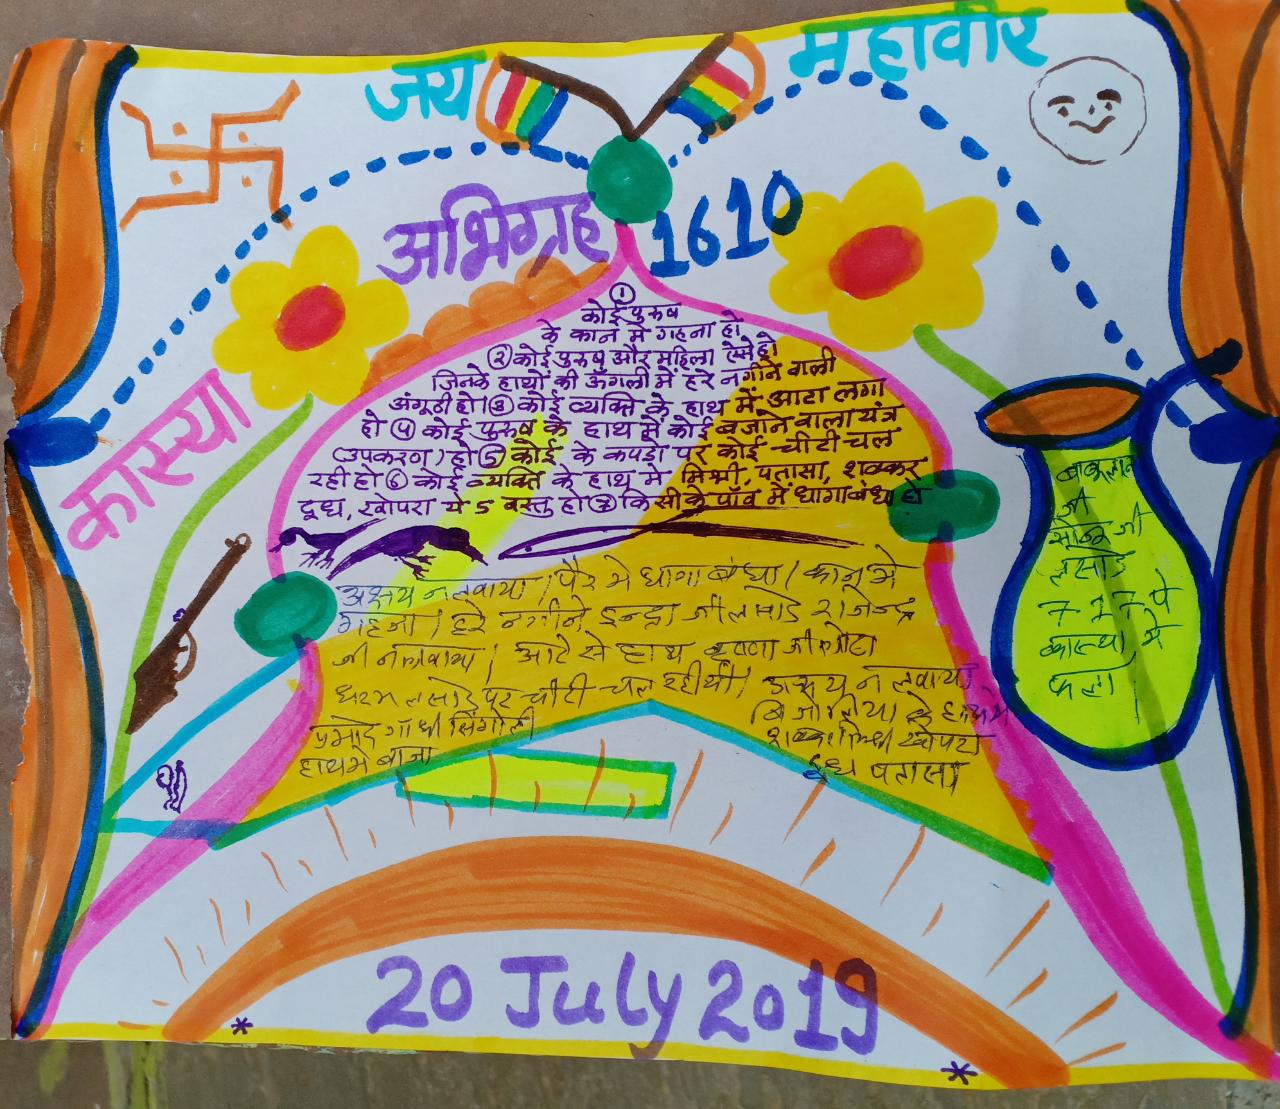 जय महावीर
अभिग्रह 1610
कास्या
①
कोई पुरुष
के कान मे गहना हो
② कोई पुरुष और महिला ऐसे हो
जिनके हाथों की ऊँगली में हरे नगीने वाली
अंगूठी हो। ③ कोई व्यक्ति के हाथ में आटा लगा
हो ④ कोई पुरुष के हाथ में कोई बजाने वाला यंत्र
(उपकरण) हो ⑤ कोई के कपडो पर कोई चीटी चल
रही हो ⑥ कोई व्यक्ति के हाथ मे मिश्री, पतासा, शक्कर
दूध, खोपरा ये 5 वस्तु हो ⑦ किसी के पाँव में धागा बंधा हो
अक्षय नलवाया / पैर मे धागा बंधा / कान मे
गहना / हरे नगीने, इन्द्रा जी लसोड राजेन्द्र
जी नलवाया / आटे से हाथ जी
लसोड पर चीटी चल रही थी / अक्षय नलवाया
प्रमोद गाँधी सिंगोली
हाथ मे बाजा
बिजोलिया के हाथ मे
शक्कर मिश्री खोपरा
दूध पतासा
जी
जी
लसोड
7-17 पे
कास्या मे
फला
20 July 2019